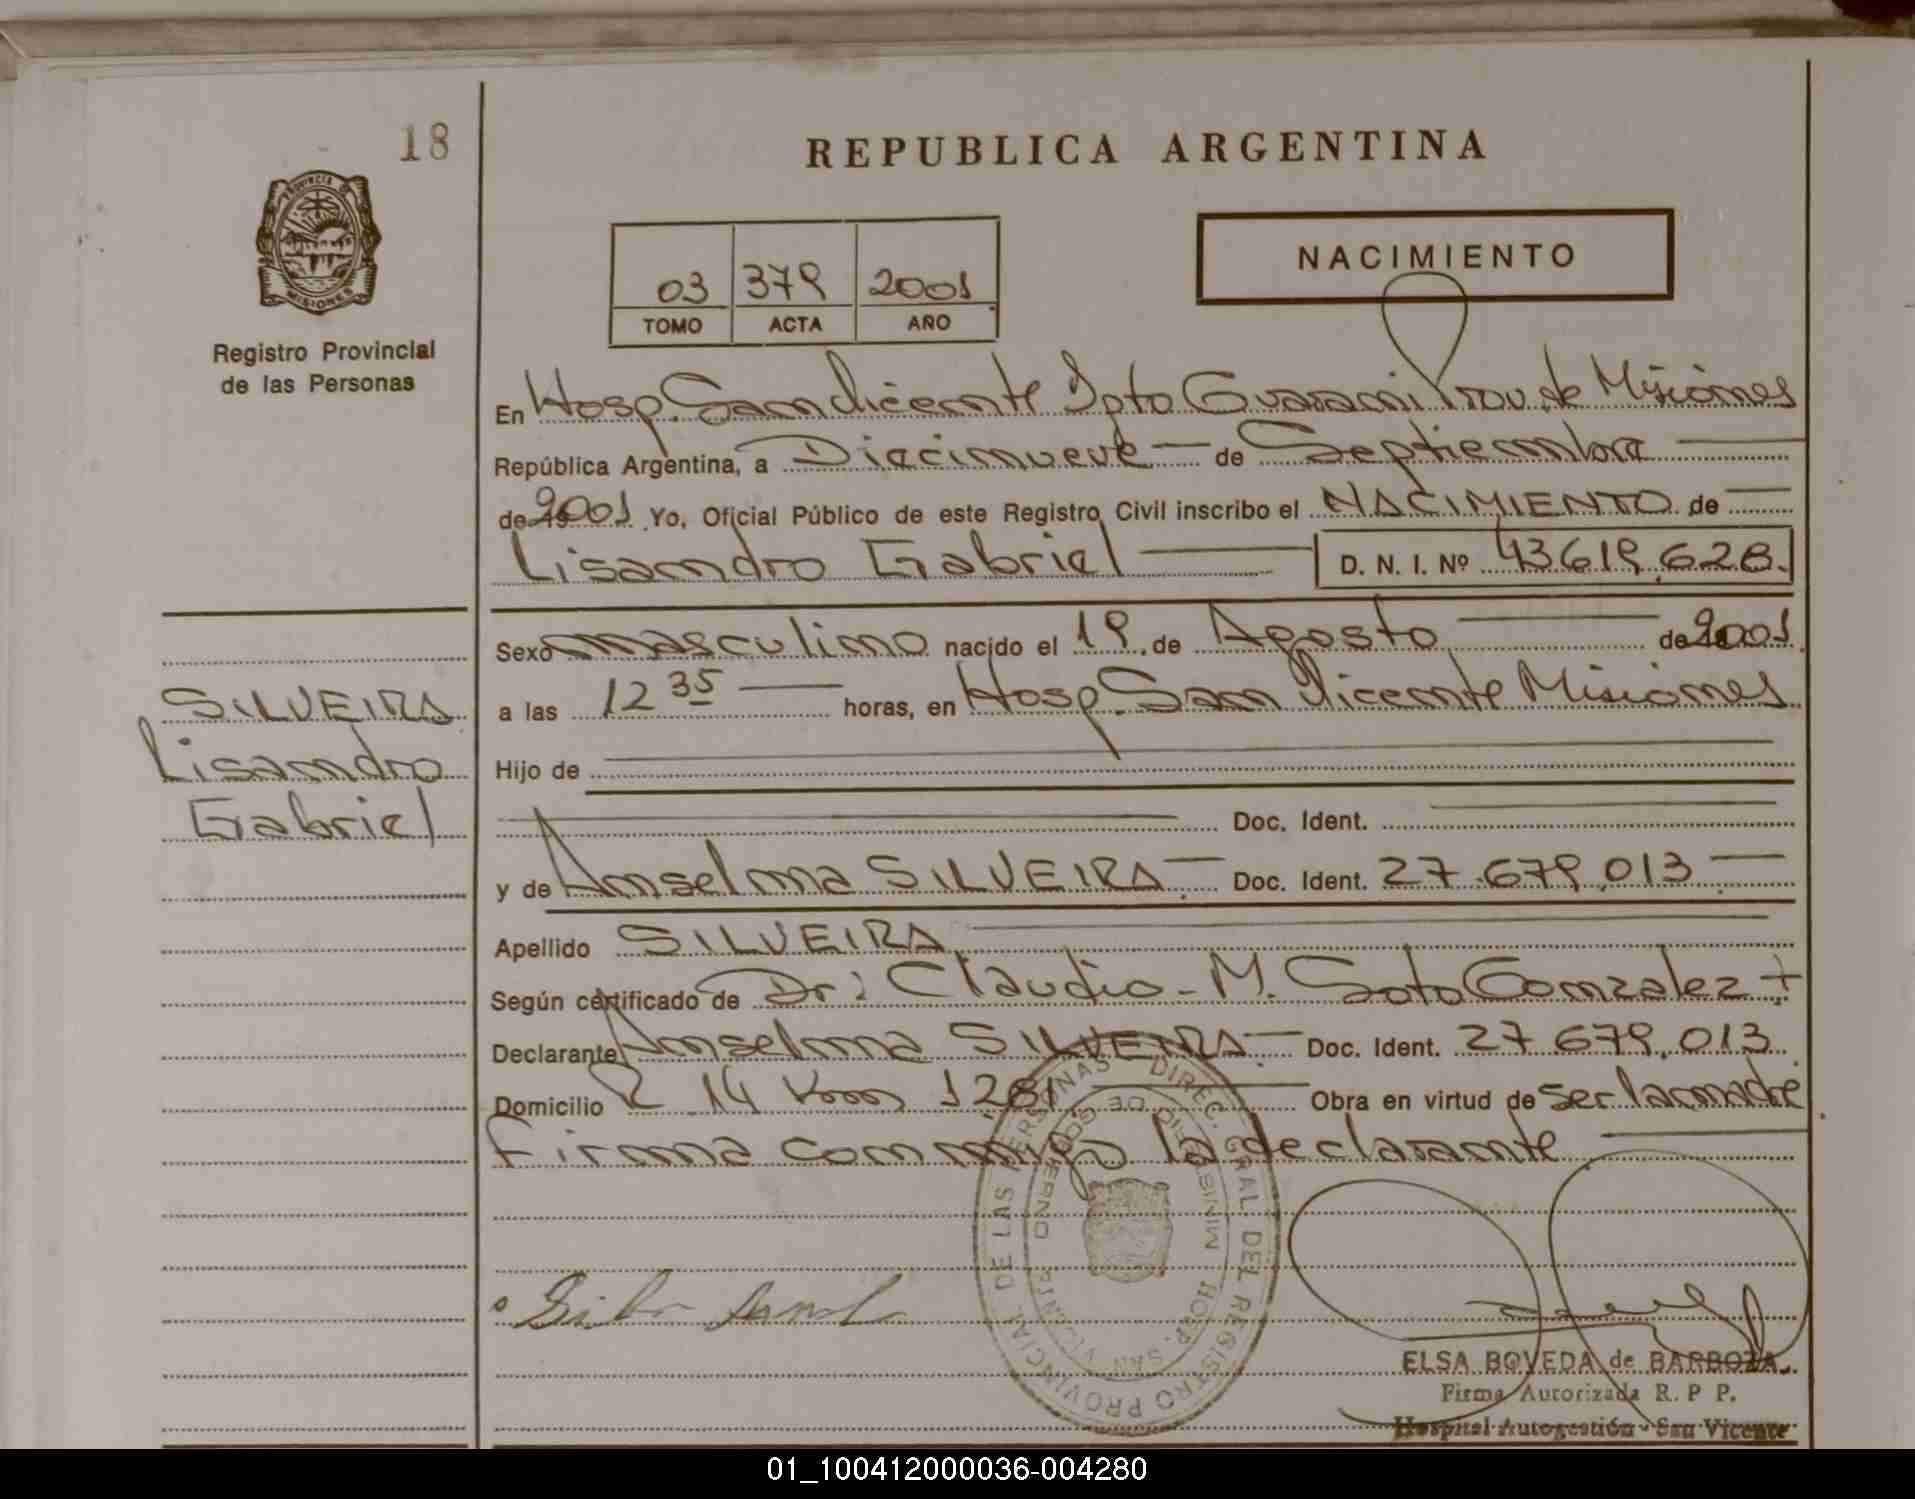 18
PROVINCIA DE
MISIONES
Registro Provincial
de las Personas
REPUBLICA ARGENTINA
03 379 2001
TOMO ACTA AÑO
NACIMIENTO
En Hosp. San Vicente Dpto Guarani Prov. de Misiones
República Argentina, a Diecinueve de Septiembre
de 2001 Yo, Oficial Público de este Registro Civil inscribo el NACIMIENTO de
Lisandro Gabriel D. N. I. Nº 43619.628.
Sexo masculino nacido el 19 de Agosto de 2001
a las 12 35 horas, en Hosp. San Vicente Misiones
Hijo de
Doc. Ident.
y de Anselma SILVEIRA Doc. Ident. 27.679.013
Apellido SILVEIRA
Según certificado de Dr: Claudio M. Soto Gonzalez +
Declarante Anselma SILVEIRA Doc. Ident. 27 679.013
Domicilio R 14 Km 1281 Obra en virtud de ser la madre
firma conmigo la declarante
SILVEIRA
Lisandro
Gabriel
DIREC. GRAL DEL REGISTRO PROVINCIAL DE LAS PERSONAS
HOSP. SAN VICENTE
ELSA BOVEDA de BARBOZA
Firma Autorizada R. P P.
Hospital Autogestión - San Vicente
01_100412000036-004280